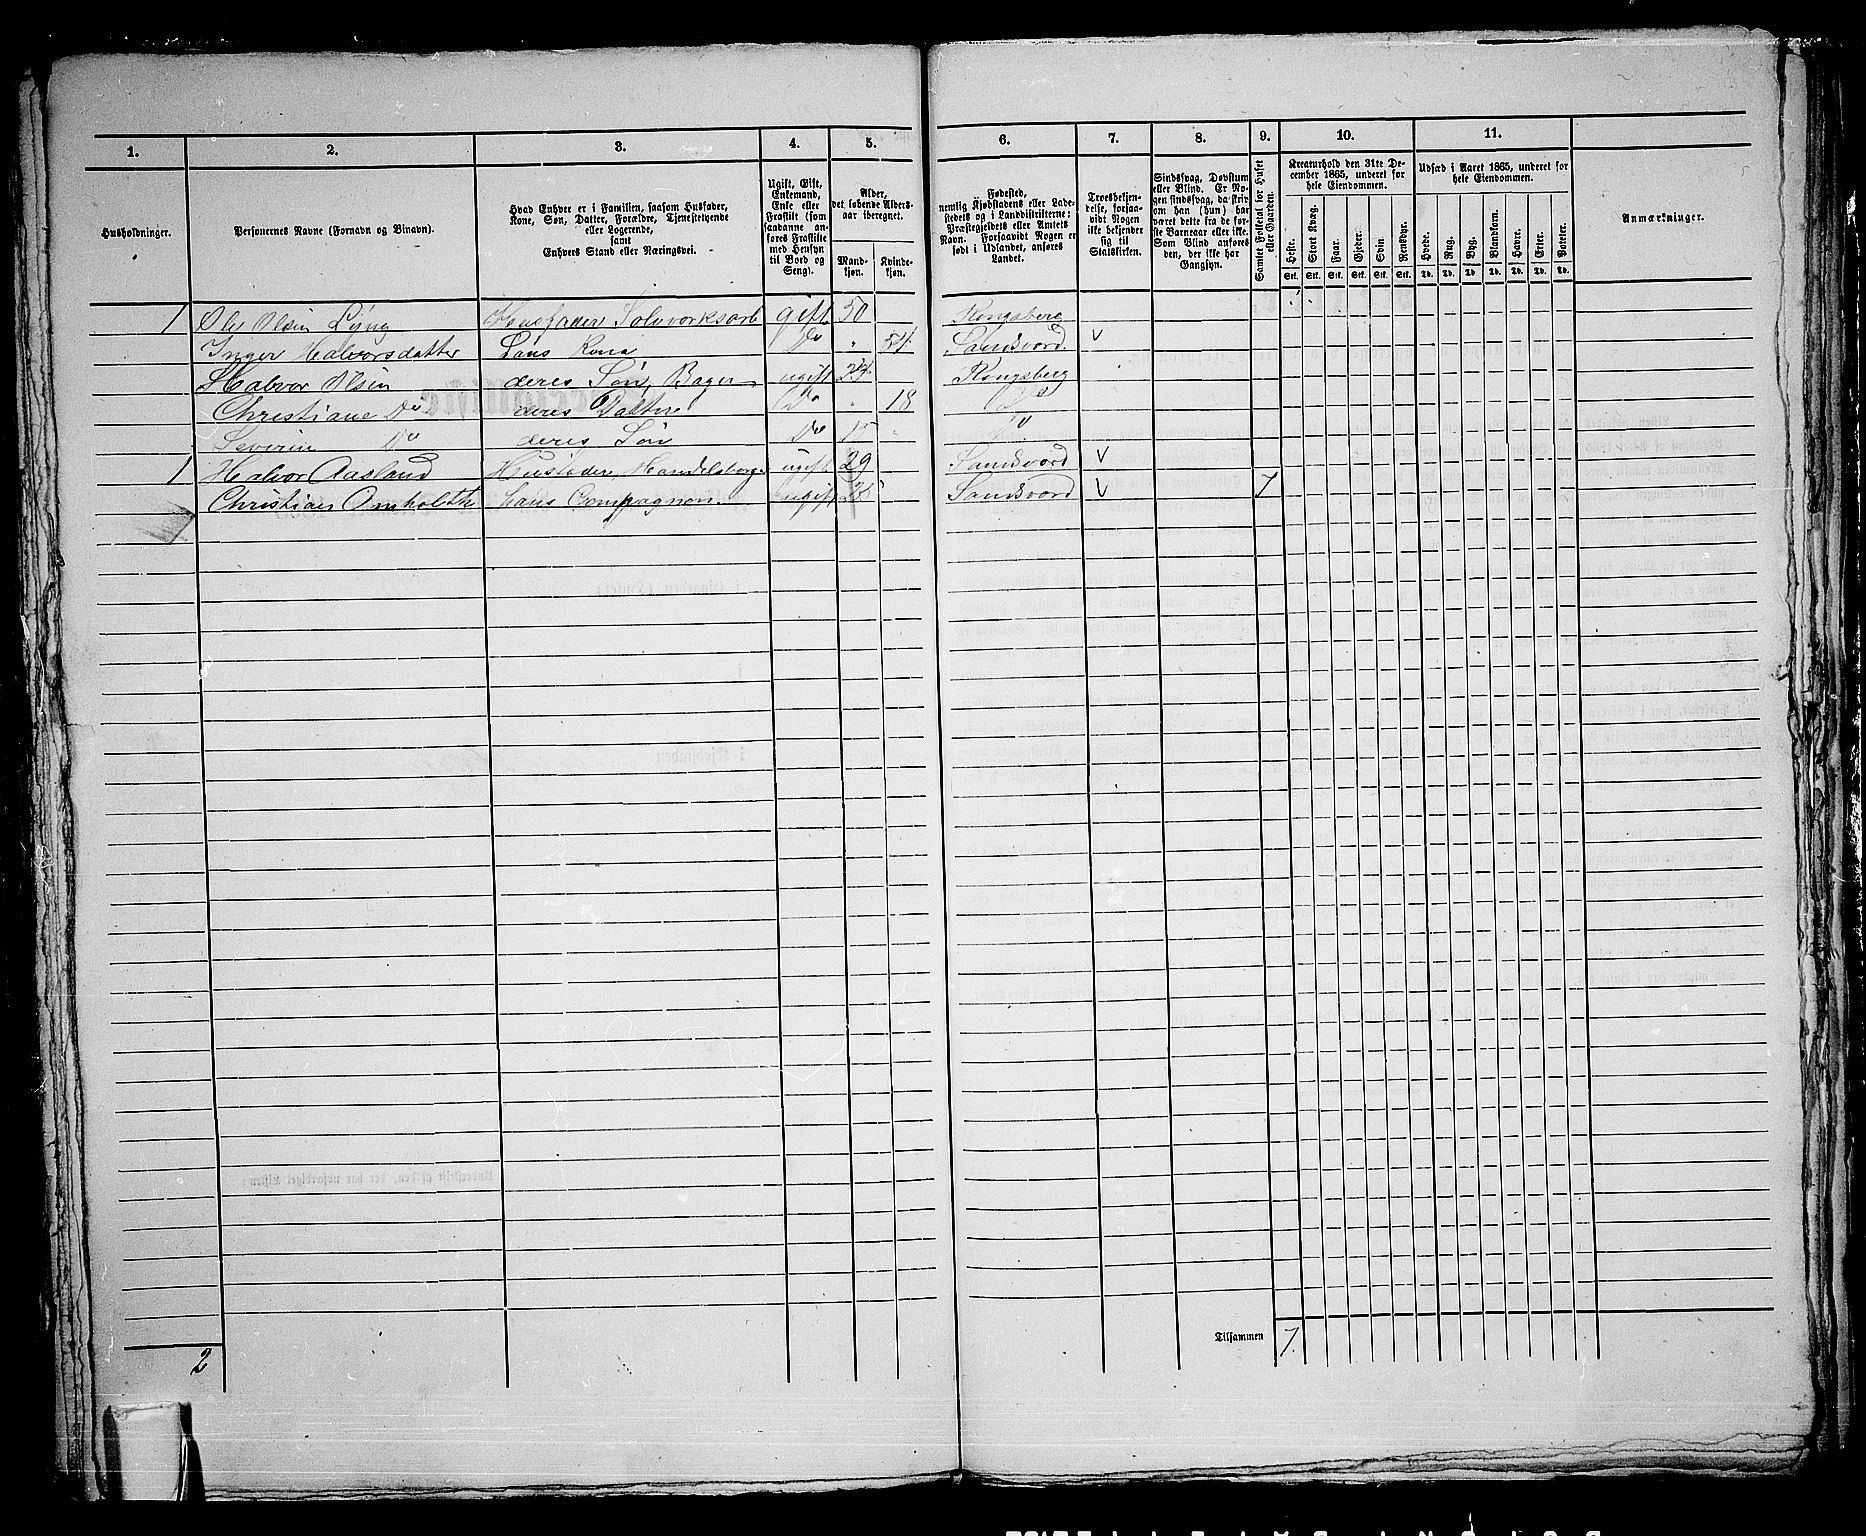 1. 2. 3. 4. 5. 6. 7. 8. 9. 10. 11.
Husholdninger.
Personernes Navne (Fornavn og Binavn).
Hvad Enhver er i Familien, saasom Husfader,
Kone, Søn, Datter, Forældre, Tjenestetyende
eller Logerende,
samt
Enhvers Stand eller Næringsvei.
Ugift, Gift,
Enkemand,
Enke eller
Fraskilt (som
saadanne an-
føres Fraskilte
med Hensyn
til Bord og
Seng).
Alder,
det løbende Alders-
aar iberegnet.
Mand-
kjøn.
Kvinde-
kjøn.
Fødested,
nemlig Kjøbstadens eller Lade-
stedets og i Landdistrikterne:
Præstegjeldets eller Amtets
Navn. Forsaavidt Nogen er
født i Udlandet, anføres
Landet.
Troesbekjen-
delse, forsaa-
vidt Nogen
ikke bekjender
sig til
Statskirken.
Sindssvag, Døvstum
eller Blind. Er No-
gen sindssvag, da skriv
om han (hun) har
været dette fra de før-
ste Barneaar eller ikke.
Som Blind anføres
den, der ikke har
Gangsyn.
Samlet Folketal for Huset
eller Gaarden.
Kreaturhold den 31te De-
cember 1865, underet for
hele Eiendommen.
Heste. Stort Kvæg. Faar. Gjeder. Svin. Rensdyr.
Stk. Stk. Stk. Stk. Stk. Stk.
Udsæd i Aaret 1865, underet for
hele Eiendommen.
Hvede. Rug. Byg. Blandkorn. Havre. Erter. Poteter.
Td. Td. Td. Td. Td. Td. Td.
Anmærkninger.
1 Ole Olsen Lyng Husfader Sølvverksarb gift 50 Kongsberg
Inger Halvorsdatter Hans Kone Do " 54 Sandsværd V
Halvor Olsen deres Søn, Bager ugift 24 Kongsberg
Christiane Do deres Datter Do " 18 Do
Severin Do deres Søn Do 15 " Do
1 Halvor Aasland Husfader, Handelsborger ugift 29 Sandsværd V
Christian Omholth Hans Compagnon ugift Sandsværd V 7
Tilsammen 7.
2